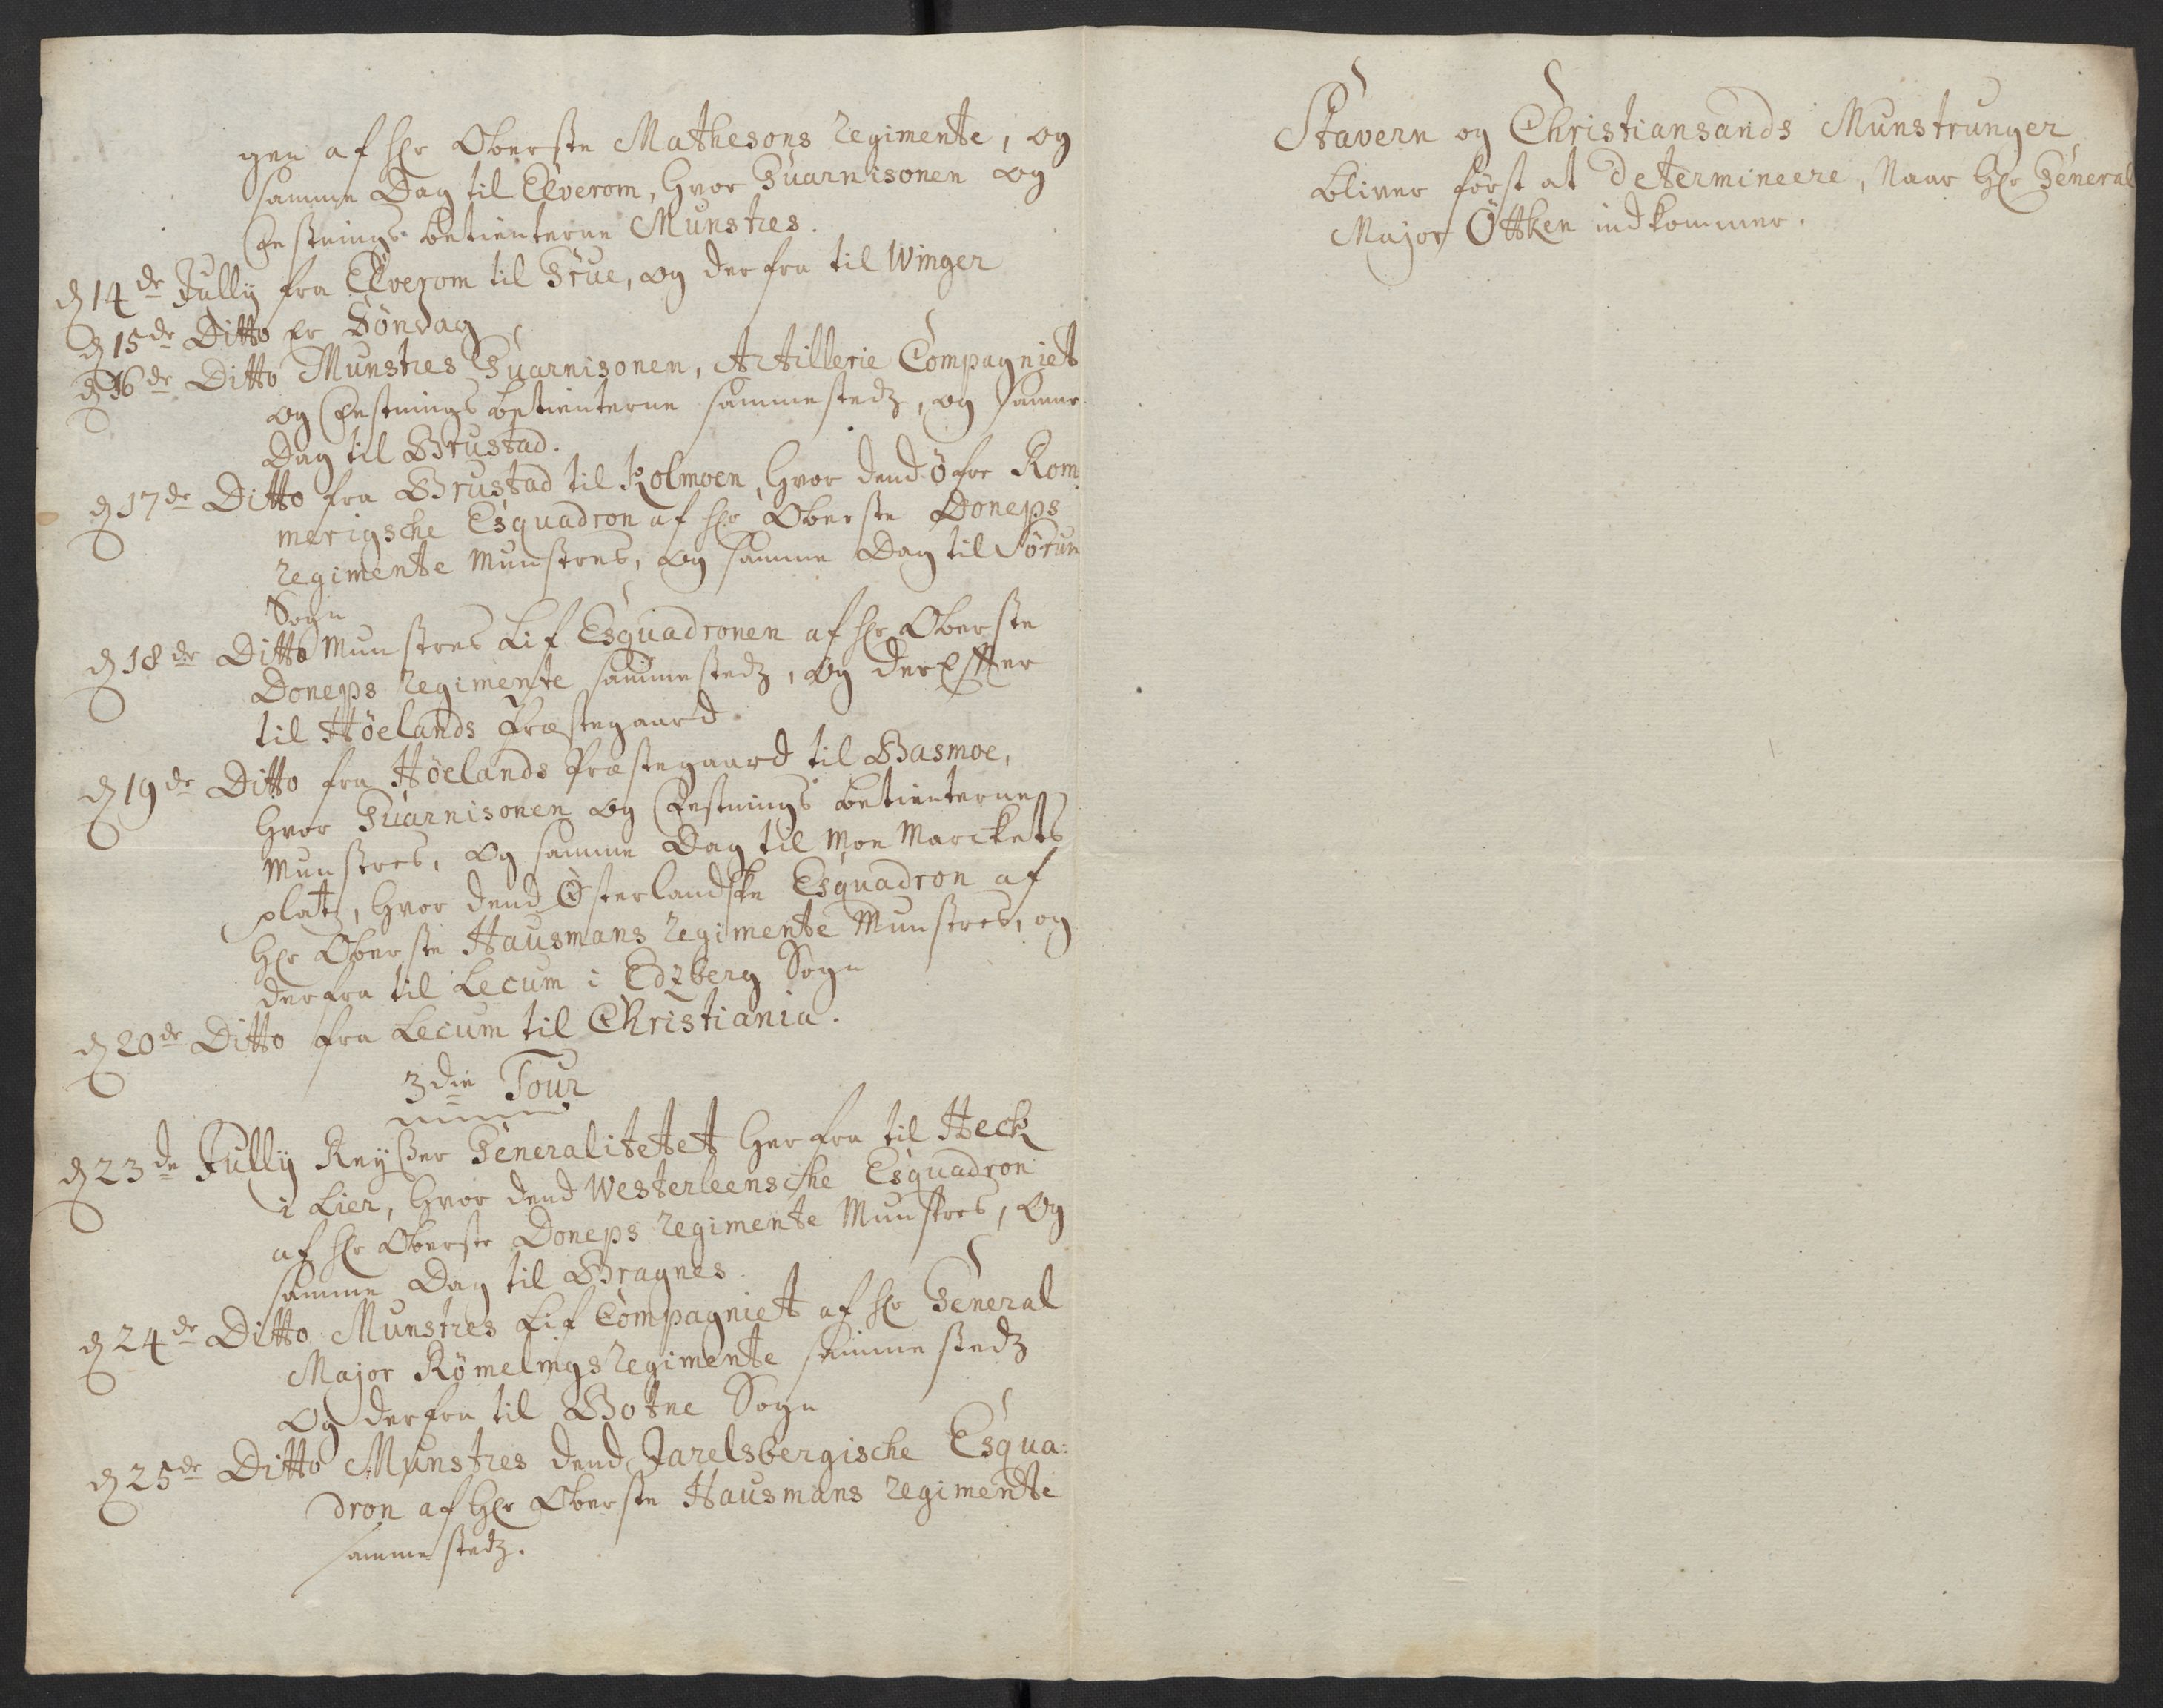 gen af hr Oberste Mathesons regimente, og
samme Dag til Elverom, hvor Guarnisonen og
Festnings betienterne Munstres.
d 14de Jully fra Elverom til Grue, og der fra til Winger
d 15de Ditto er Söndag
d 16de Ditto Munstres Guarnisonen, Artillerie Compagniet
og Festnings betienterne sammestedz, og samme
Dag til Grustad.
d 17de Ditto fra Grustad til Kolmoen, hvor dend öfre Rom
merigsche Esquadron af hr Oberste Doneps
regimente Munstres, og samme Dag til Sörum
Sogn
d 18de Ditto Munstres Lif Esquadronen af hr Oberste
Doneps regimente sammestedz, og der effter
til Höelands Præstegaard
d 19de Ditto fra Höelands Præstegaard til Basmoe,
hvor Guarnisonen og Festnings betienterne
Munstres, og samme Dag til Moe Marckets
platz, hvor dend Österlandske Esquadron af
Hr Oberste Hausmans regimente Munstres, og
derfra til Lecum i Edzberg Sogn
d 20de Ditto fra Lecum til Christiania.
3die Tour
d 23de Jully Reyßer Generalitetet her fra til Heck
i Lier, hvor dend Westerleensche Esquadron
af hr Oberste Doneps regimente Munstres, og
samme Dag til Bragnes
d 24de Ditto Munstres Lif Compagniet af hr General
Major Römelings regimente samme stedz
og derfra til Botne Sogn
d 25de Ditto Munstres dend Jarelsbergische Esqua:
dron af Hr Oberste Hausmans regimente
samme stedz.
Stavern og Christiansands Munstrunger
bliver först at determineere, Naar Hr General
Major Öttken indkommer.